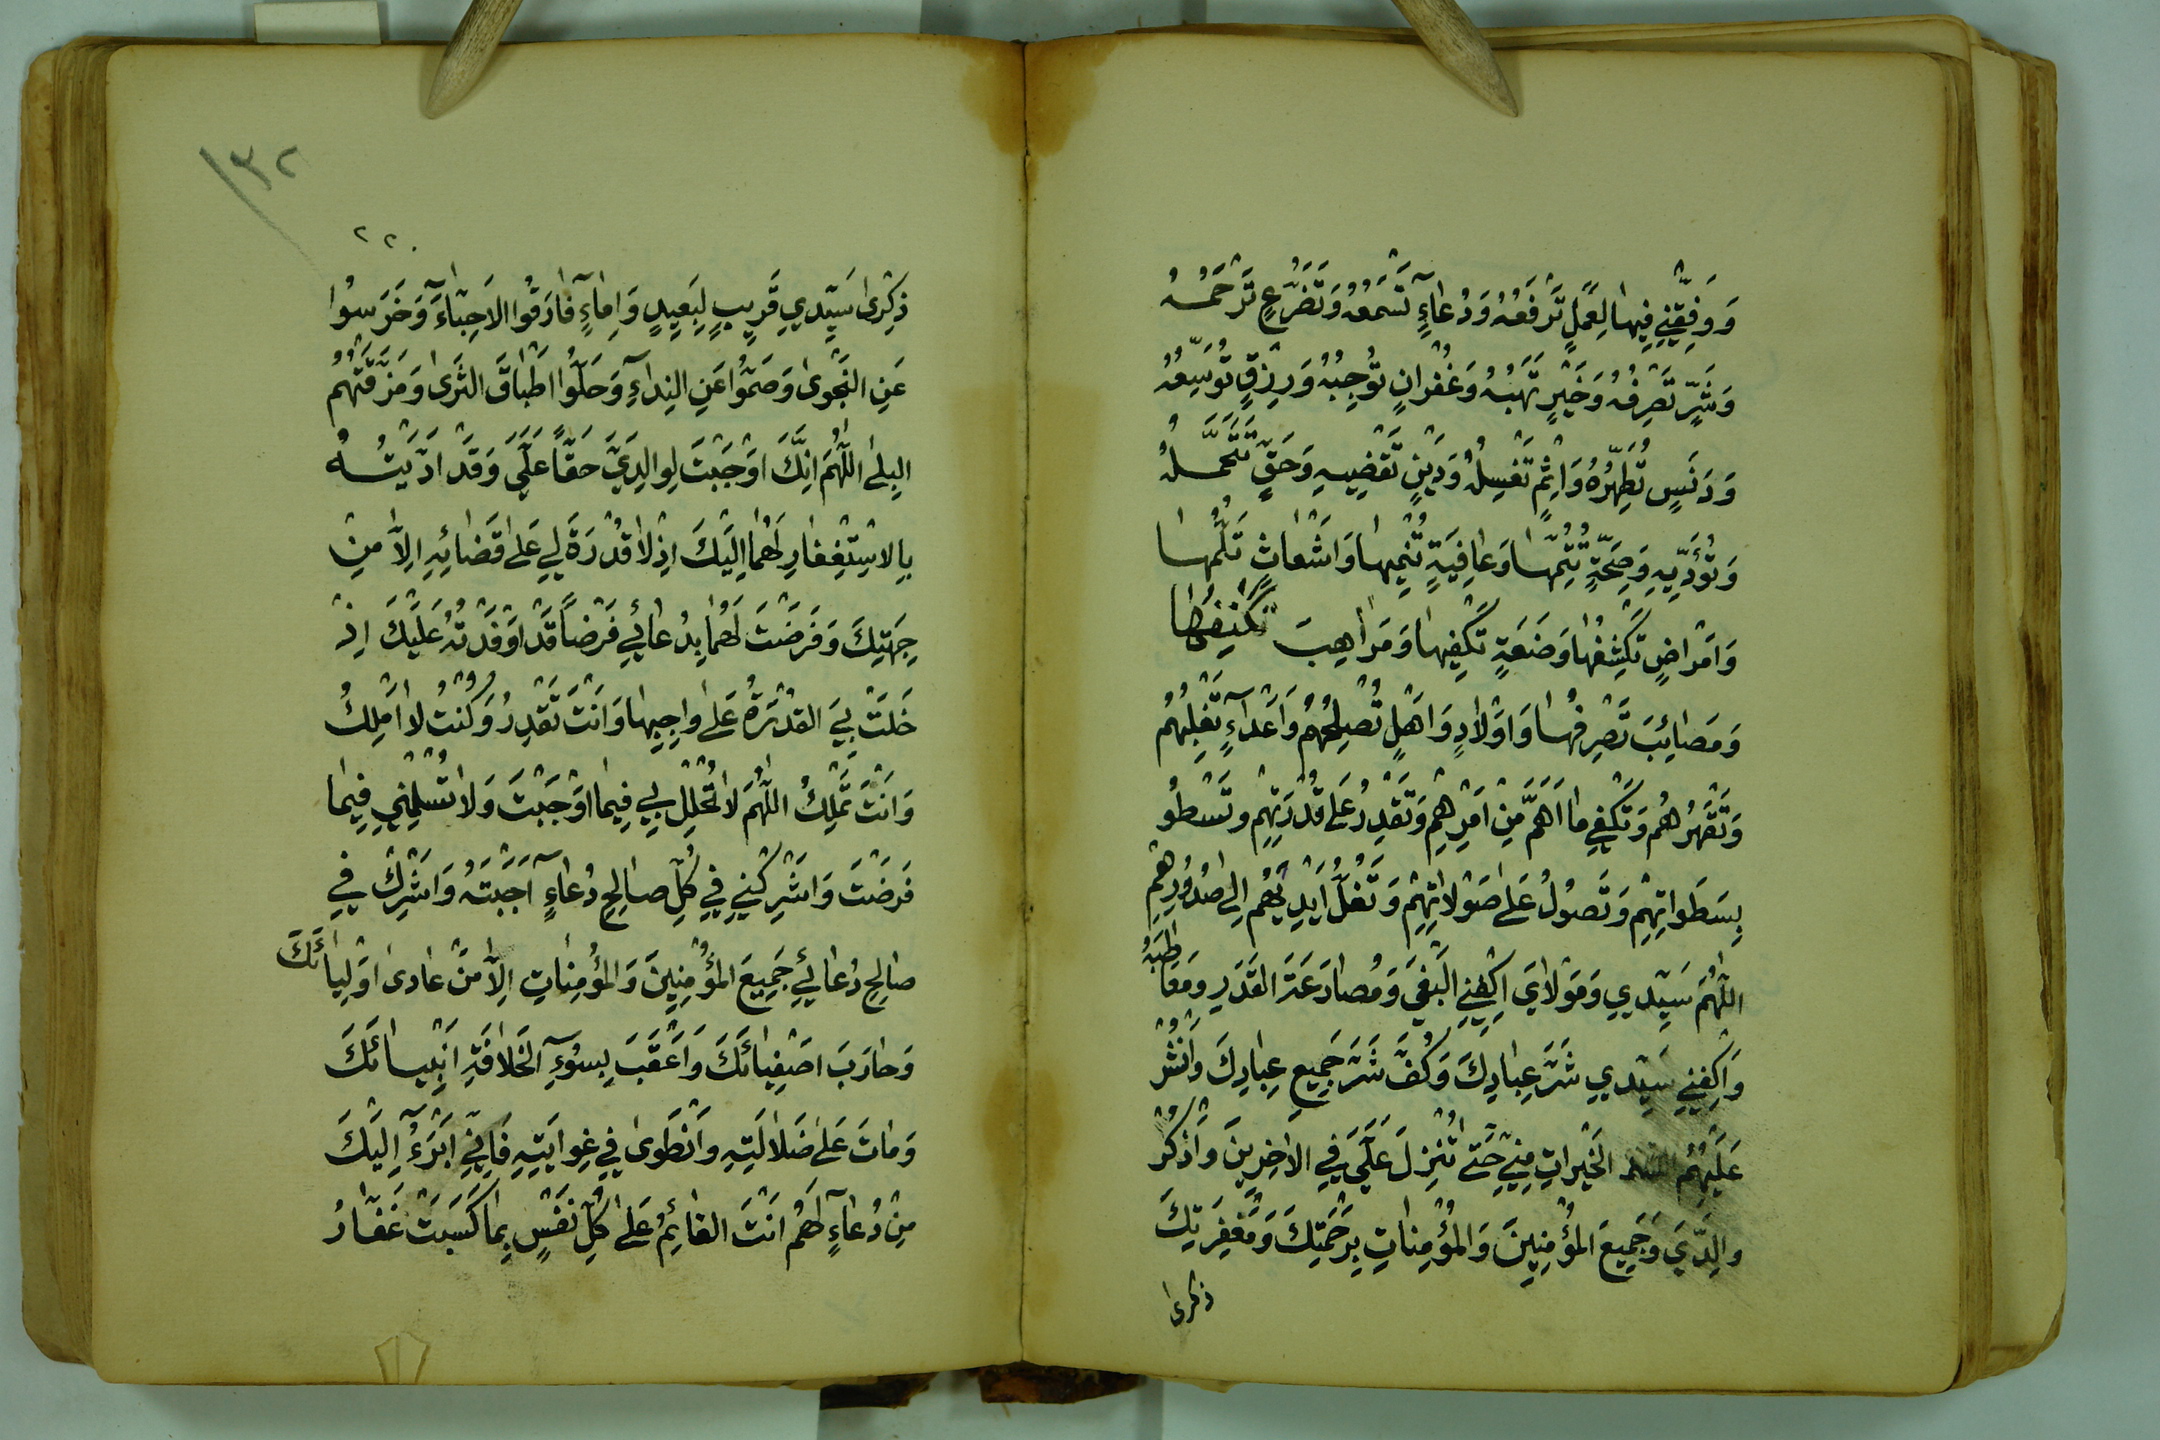 وَوَفِّقْنِي فِيها لِعَمَلٍ تَرْفَعُهُ وَدُعاءٍ تَسْمَعُهُ وَتَضَرُّعٍ تَرْحَمُهُ
وَشَرٍّ تَصْرِفُهُ وَخَيْرٍ تَهَبُهُ وَغُفْرانٍ تُوجِبُهُ وَرِزْقٍ تُوَسِّعُهُ
وَدَنَسٍ تُطَهِّرُهُ وَاِثْمٍ تَغْسِلُهُ وَدَيْنٍ تَقْضِيهِ وَحَقٍّ تَتَحَمَّلُهُ
وَتُؤَدِّيهِ وَصِحَّةٍ تُتِمُّها وَعافِيَةٍ تُنْمِيها وَاَشْعاثٍ تَلُمُّها
وَاَمْراضٍ تَكْشِفُها وَصَنْعَةٍ تَكْفِيها وَمَراهِبَ تَكْنِفُها
وَمَصائِبَ تَصْرِفُها وَاَوْلادٍ وَاَهْلٍ تُصْلِحُهُمْ وَاَعْداءٍ تَغْلِبُهُمْ
وَتَقْهَرُهُمْ وَتَكْفِي ما اَهَمَّ مِنْ اَمْرِهِمْ وَتَقْدِرُ عَلى قُدْرَتِهِمْ وَتَسْطُو
بِسَطَواتِهِمْ وَتَصُولُ عَلى صَوْلاتِهِمْ وَتَغُلُّ اَيْدِيَهُمْ اِلى صُدُورِهِمْ
اللّهُمَّ سَيِّدِي وَمَوْلايَ اكْفِنِي الْبَغْيَ وَمُصادَعَةَ الْقَدَرِ وَمَعاطِبَهُ
وَاكْفِنِي سَيِّدِي شَرَّ عِبادِكَ وَكُفَّ شَرَّ جَمِيعِ عِبادِكَ وَانْشُرْ
عَلَيْهِمُ الْخَيْراتِ مِنِّي حَتّى تُنْزِلَ عَلَيَّ فِي الآخِرِينَ وَاذْكُرْ
والِدَيَّ وَجَمِيعَ الْمُؤْمِنِينَ وَالْمُؤْمِناتِ بِرَحْمَتِكَ وَمَغْفِرَتِكَ
ذكرى
٣٢
٢٢٠
ذِكْرى سَيِّدِي قَرِيبٍ لِبَعِيدٍ وَاِماءٍ فارَقُوا الاَحِبّاءَ وَخَرَسُوا
عَنِ النَّجْوى وَصَمُّوا عَنِ النِّداءِ وَحَلُّوا اَطْباقَ الثَّرى وَمَزَّقَتْهُمْ
الْبِلى اللّهُمَّ اِنَّكَ اَوْجَبْتَ لِوالِدَيَّ حَقّاً عَلَيَّ وَقَدْ اَدَّيْتُهُ
بِالاِسْتِغْفارِ لَهُما اِلَيْكَ اِذْ لا قُدْرَةَ لِي عَلى قَضائِهِ اِلاّ مِنْ
جِهَتِكَ وَفَرَضْتَ لَهُما بِدُعائِي فَرْضاً قَدْ اَوْفَدْتُهُ عَلَيْكَ اِذْ
خَلَتْ بِيَ الْقُدْرَةُ عَلى واجِبِها وَاَنْتَ تَقْدِرُ وَكُنْتُ لا اَمْلِكُ
وَاَنْتَ تَمْلِكُ اللّهُمَّ لا تُحْلِلْ بِي فِيما اَوْجَبْتَ وَلا تُسْلِمْنِي فِيما
فَرَضْتَ وَاَشْرِكْنِي فِي كُلِّ صالِحِ دُعاءٍ اَجَبْتَهُ وَاَشْرِكْ فِي
صالِحِ دُعائِي جَمِيعَ الْمُؤْمِنِينَ وَالْمُؤْمِناتِ اِلاّ مَنْ عادى اَوْلِيائَكَ
وَحارَبَ اَصْفِيائَكَ وَاَعْقَبَ بِسُوءِ الْخَلافَةِ اَنْبِيائَكَ
وَماتَ عَلى ضَلالَتِهِ وَانْطَوى فِي غِوايَتِهِ فَاِنِّي اَبْرَءُ اِلَيْكَ
مِنْ دُعاءٍ لَهُمْ اَنْتَ الْقائِمُ عَلى كُلِّ نَفْسٍ بِما كَسَبَتْ غَفّارُ